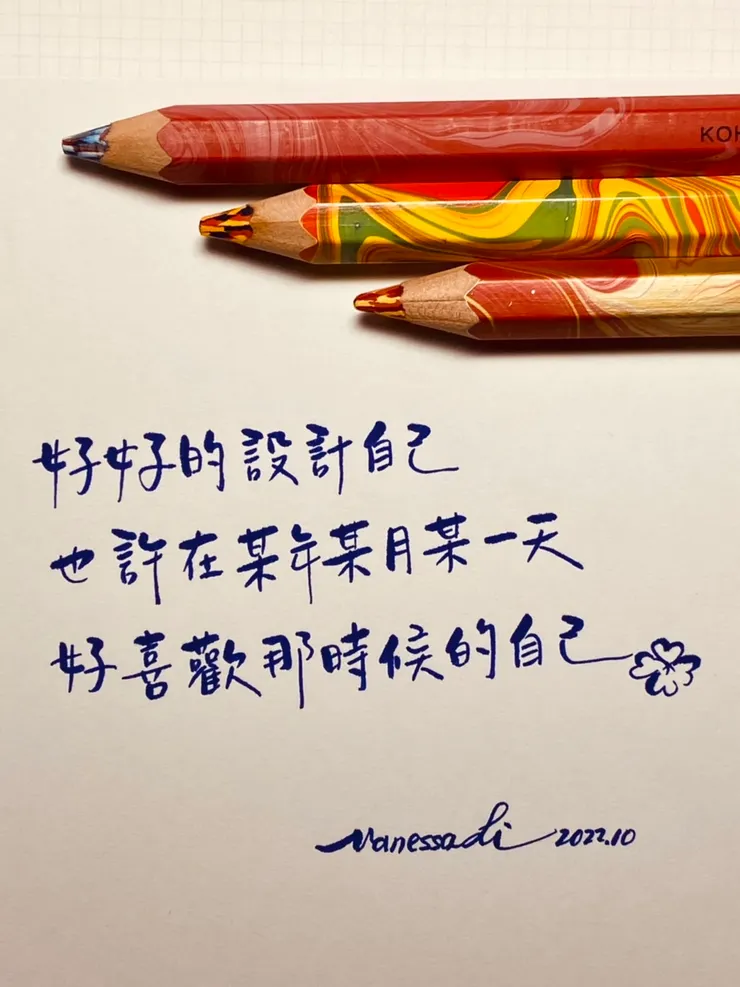 KOH
好好的設計自己
也許在某年某月某一天
好喜歡那時候的自己
Vanessa Li 2022.10